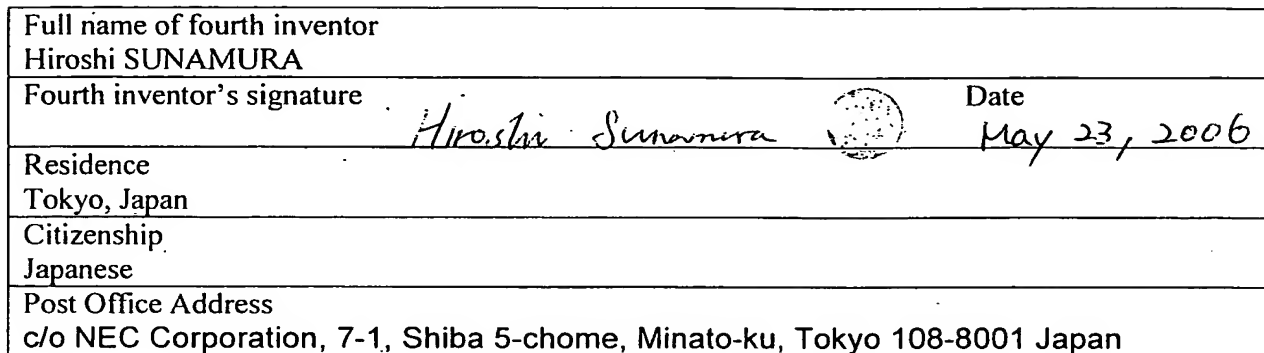 Full name of fourth inventor
Hiroshi SUNAMURA
Fourth inventor's signature Date
Hiroshi Sunamura May 23, 2006
Residence
Tokyo, Japan
Citizenship
Japanese
Post Office Address
c/o NEC Corporation, 7-1, Shiba 5-chome, Minato-ku, Tokyo 108-8001 Japan